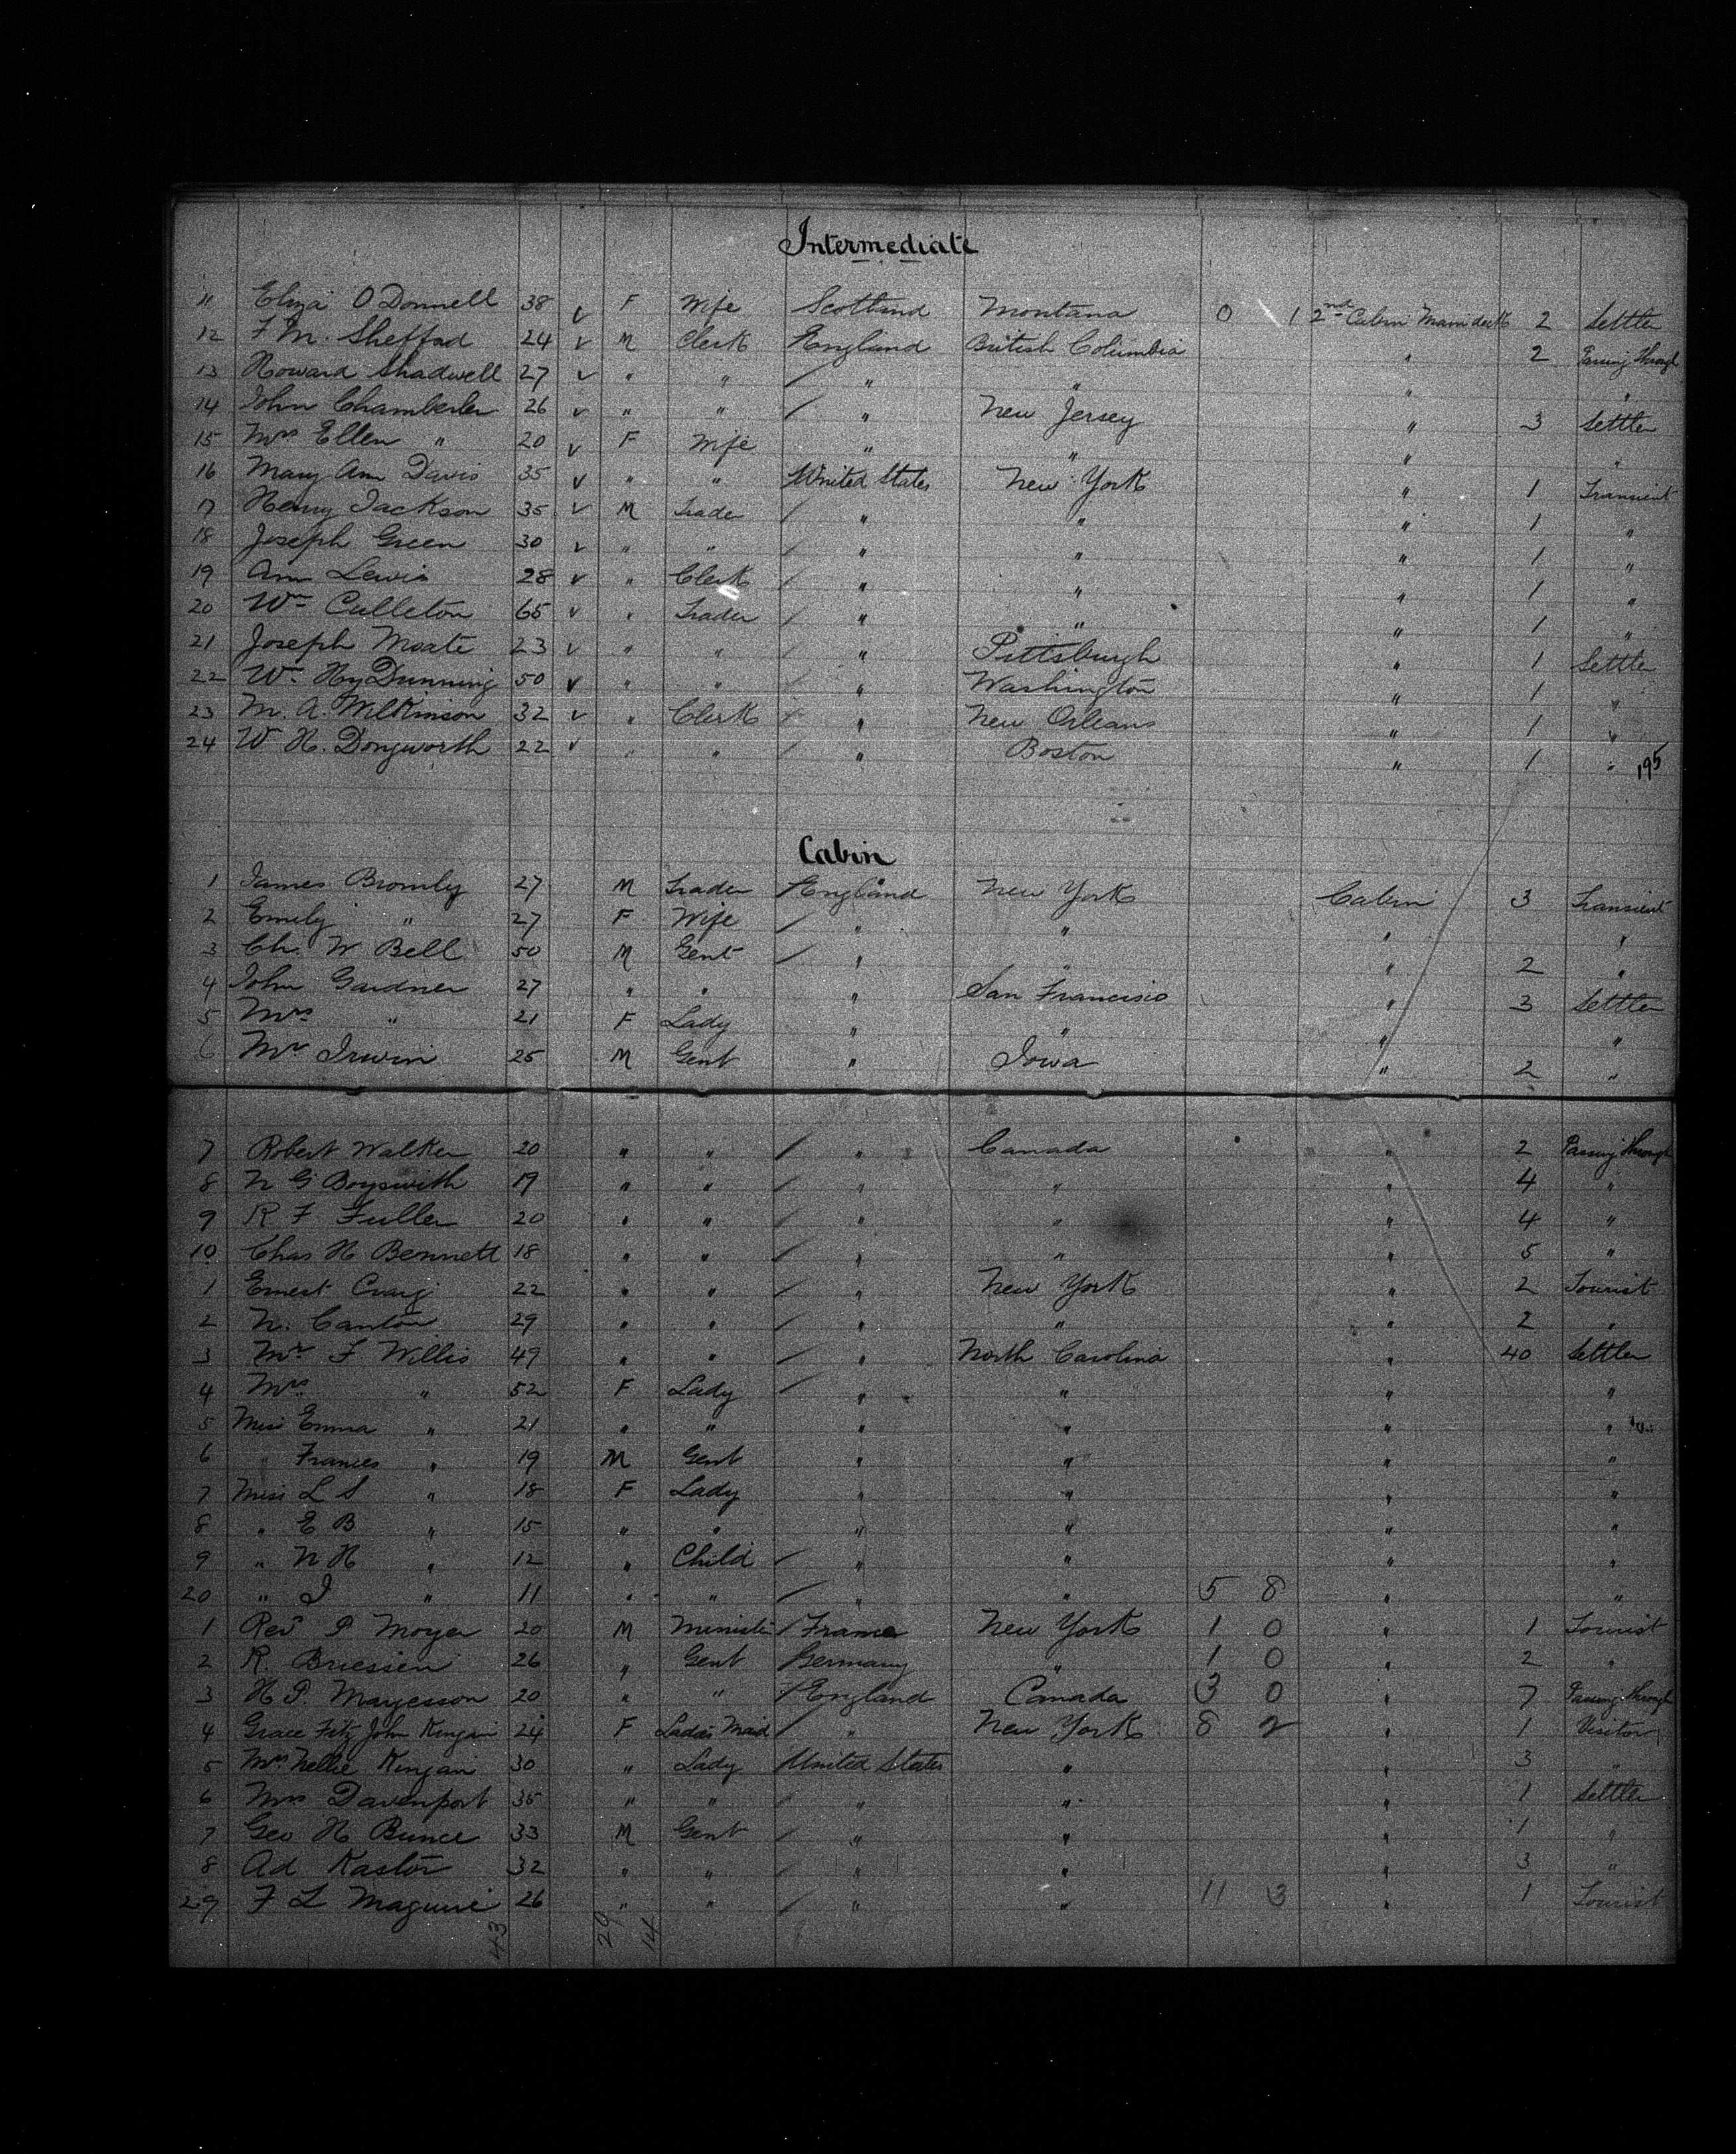 Intermediate
11 Eliza O'Donnell 38 v F Wife Scotland Montana 0 1 2nd Cabin Main deck 2 Settler
12 F. M. Sheffad 24 v M Clerk England British Columbia " 2 Passing through
13 Howard Shadwell 27 v " " / " " " "
14 John Chamberler 26 v " " / " New Jersey " 3 Settler
15 Mrs Ellen " 20 v F Wife " " " "
16 Mary Ann Davis 35 v " " United States New York " 1 Transient
17 Henry Jackson 35 v M Trader / " " " 1 "
18 Joseph Green 30 v " " / " " " 1 "
19 Ann Lewis 28 v " Clerk / " " " 1 "
20 Wm Culleton 65 v " Trader / " " " 1 "
21 Joseph Moate 23 v " " / " Pittsburgh " 1 Settler
22 Wm Hy Dunning 50 v " " / " Washington " 1 "
23 M. A. Wilkinson 32 v " Clerk / " New Orleans " 1 "
24 W. H. Dongworth 22 v " " / " Boston " 1 " 195
Cabin
1 James Bromly 27 M Trader / England New York Cabin 3 Transient
2 Emily " 27 F Wife / " " " "
3 Ch. W Bell 50 M Gent / " " " 2 "
4 John Gardner 27 " " " San Francisco " 3 Settler
5 Mrs " 21 F Lady " " " "
6 Mr Irwin 25 M Gent " Iowa " 2 "
7 Robert Walker 20 " " / " Canada " 2 Passing through
8 N G Boyswith 19 " " / " " " 4 "
9 R F Fuller 20 " " / " " " 4 "
10 Chas H Bennett 18 " " / " " " 5 "
1 Ernest Craig 22 " " / " New York " 2 Tourist
2 N. Canton 29 " " / " " " 2 "
3 Mr F Willis 49 " " / " North Carolina " 40 Settler
4 Mrs " 52 F Lady / " " " "
5 Miss Emma " 21 " " " " " "
6 " Frances " 19 M Gent " " " "
7 Miss L S " 18 F Lady " " " "
8 " E B " 15 " " " " " "
9 " N H " 12 " Child / " " " "
20 " I " 11 " " / " " 5 8 " "
1 Revd P Moyer 20 M Minister / France New York 1 0 " 1 Tourist
2 R. Briesien 26 " Gent Germany " 1 0 " 2 "
3 H P. Mayesson 20 " " / England Canada 3 0 " 7 Passing through
4 Grace Fitz John Kengan 24 F Ladies Maid / " New York 8 2 " 1 Visitor
5 Mrs Nellie Kengan 30 " Lady United States " " 3 "
6 Mrs Davenport 35 " " / " " " 1 Settler
7 Geo H Bunce 33 M Gent / " " " 1 "
8 Ad Kastor 32 " " / " " " 3 "
29 F L Maguire 26 " " / " " 11 3 " 1 Tourist
43 29 14